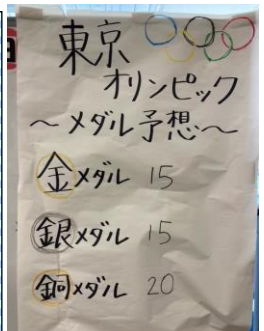 東京
オリンピック
～メダル予想～
金メダル 15
銀メダル 15
銅メダル 20